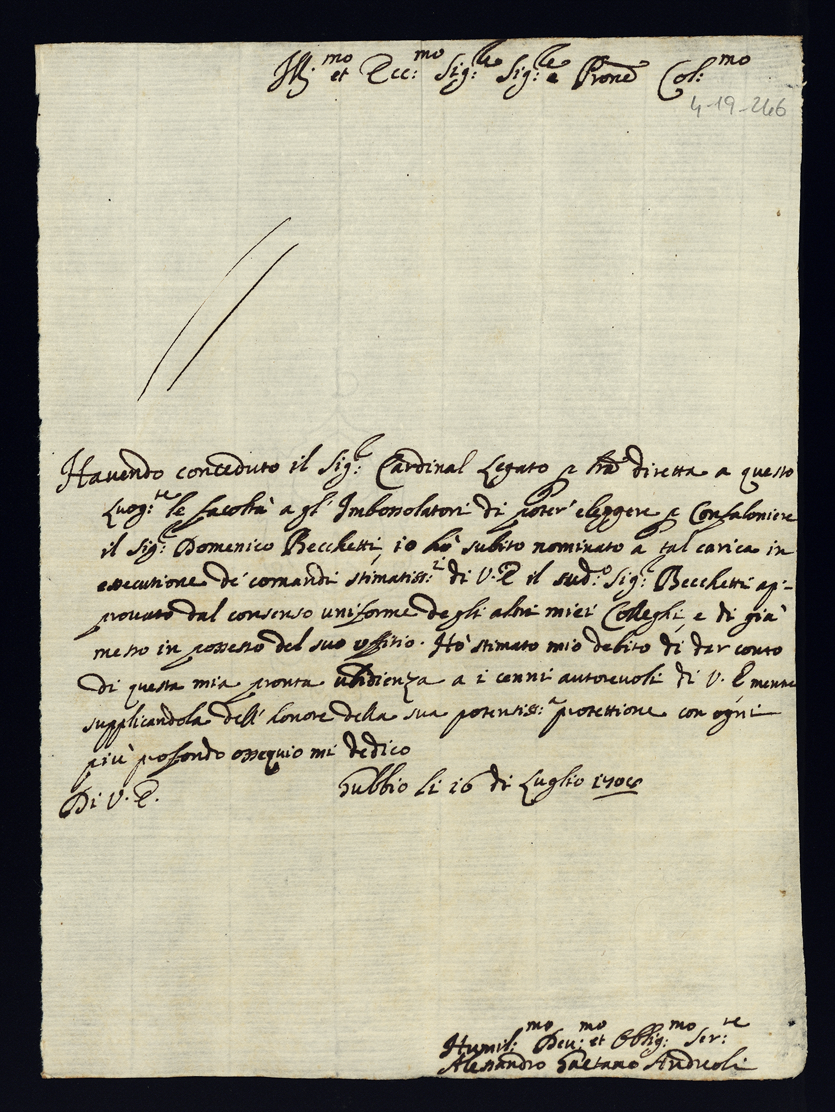 Ill:mo et Ecc:mo Sig:re Sig:re e Prone Col:mo
4-19-246
Havendo conceduto il Sig:r Cardinal Legato p lra diretta a questo
Luog:te le facoltà a gl' Imbossolatori di poter' eleggere p Confaloniere
il Sig:r Domenico Becchetti, io hò subito nominato a tal carica in
essecutione de' comandi stimatiss:i di V. E. il sud:o Sig:r Becchetti ap-
provato dal consenso uniforme degli altri miei Colleghi, e di già
messo in possesso del suo offitio. Hò stimato mio debito di dar conto
di questa mia pronta ubidienza a i cenni autorevoli di V. E. mentre
supplicandola dell' honore della sua potentiss:a protettione con ogni
più profondo ossequio mi dedico
Di V. E.
Gubbio li 16 di Luglio
Humil:mo Dev:mo et Oblig:mo Ser:re
Alessandro Gaetano Andreoli